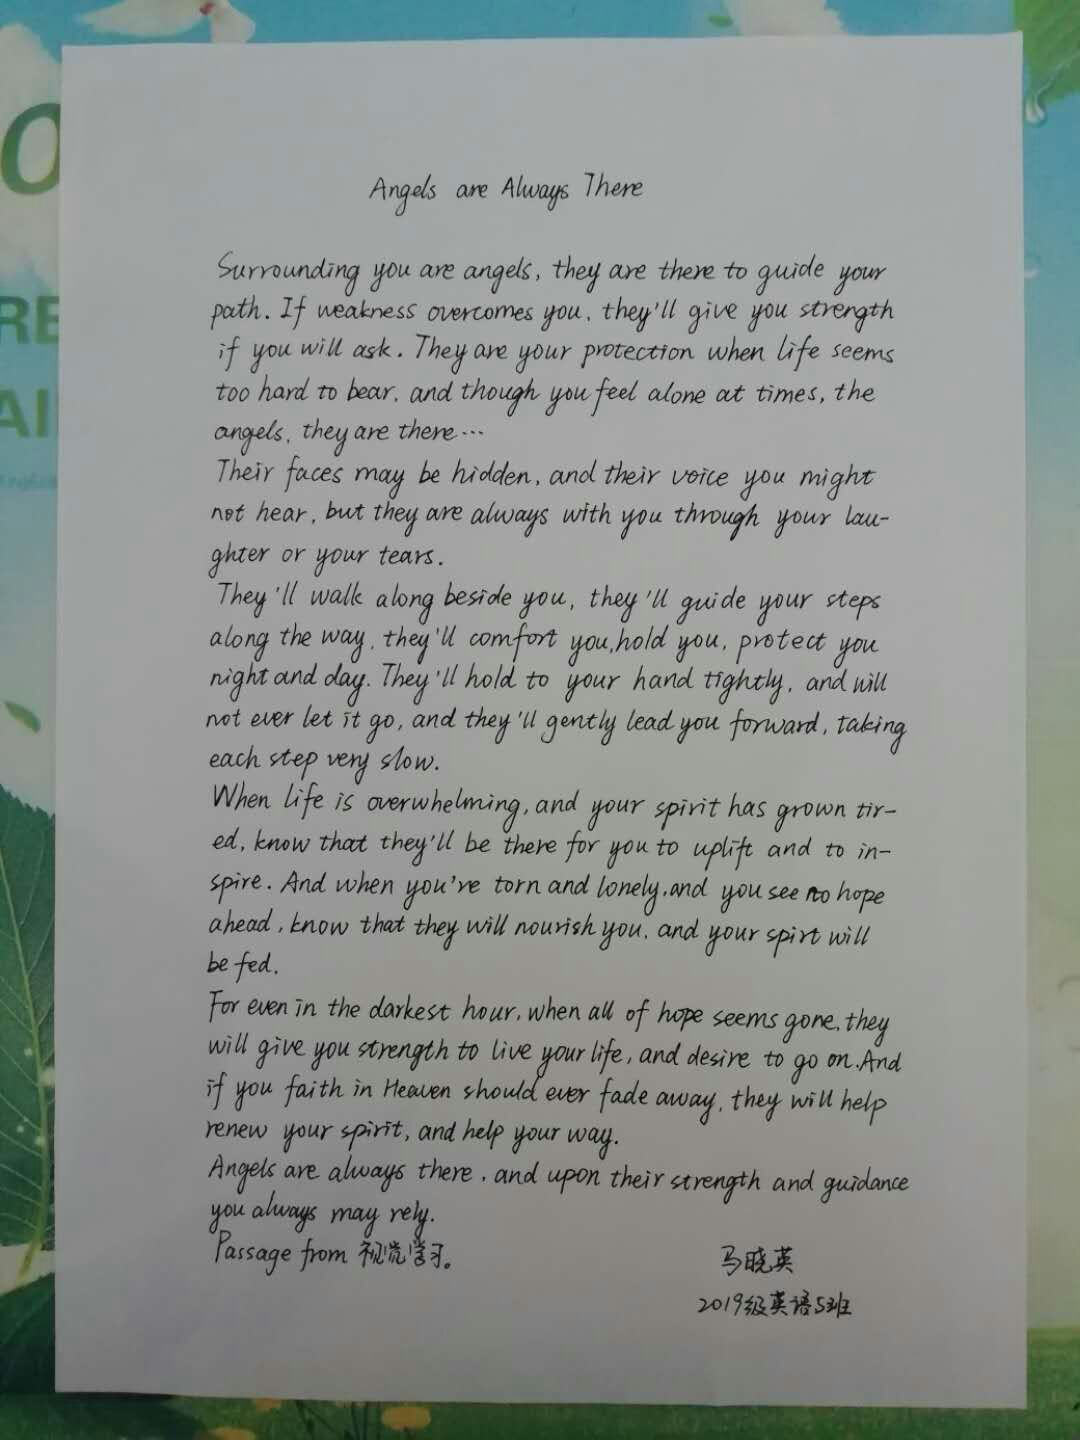 Angels are Always There
Surrounding you are angels, they are there to guide your
path. If weakness overcomes you, they'll give you strength
if you will ask. They are your protection when life seems
too hard to bear, and though you feel alone at times, the
angels, they are there...
Their faces may be hidden, and their voice you might
not hear, but they are always with you through your lau-
ghter or your tears.
They'll walk along beside you, they'll guide your steps
along the way, they'll comfort you, hold you, protect you
night and day. They'll hold to your hand tightly, and will
not ever let it go, and they'll gently lead you forward, taking
each step very slow.
When life is overwhelming, and your spirit has grown tir-
ed, know that they'll be there for you to uplift and to in-
spire. And when you're torn and lonely, and you see no hope
ahead, know that they will nourish you, and your spirt will
be fed.
For even in the darkest hour, when all of hope seems gone, they
will give you strength to live your life, and desire to go on. And
if you faith in Heaven should ever fade away, they will help
renew your spirit, and help your way.
Angels are always there, and upon their strength and guidance
you always may rely.
Passage from 视觉学习。
马晓英
2019级英语5班